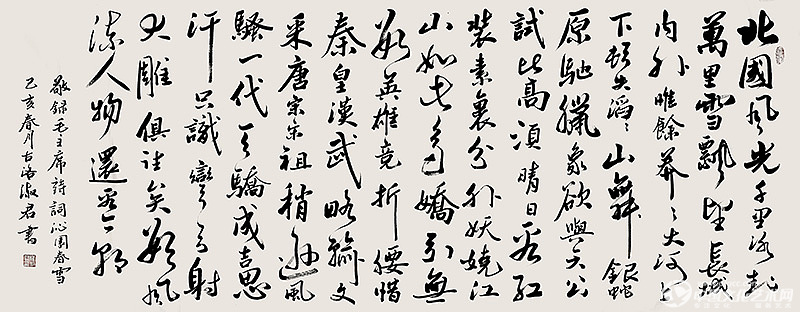 北國風光千里冰封
萬里雪飄望長城
内外唯餘莽〻大河上
下頓失滔〻山舞銀蛇
原馳臘象欲與天公
試比高須晴日看紅
裝素裹分外妖嬈江
山如此多嬌引無
數英雄競折腰惜
秦皇漢武略輸文
采唐宗宋祖稍遜風
騷一代天驕成吉思
汗只識彎弓射
大雕俱往矣數風
流人物還看今朝
敬録毛主席詩詞沁園春雪
己亥春月古洛淑君書